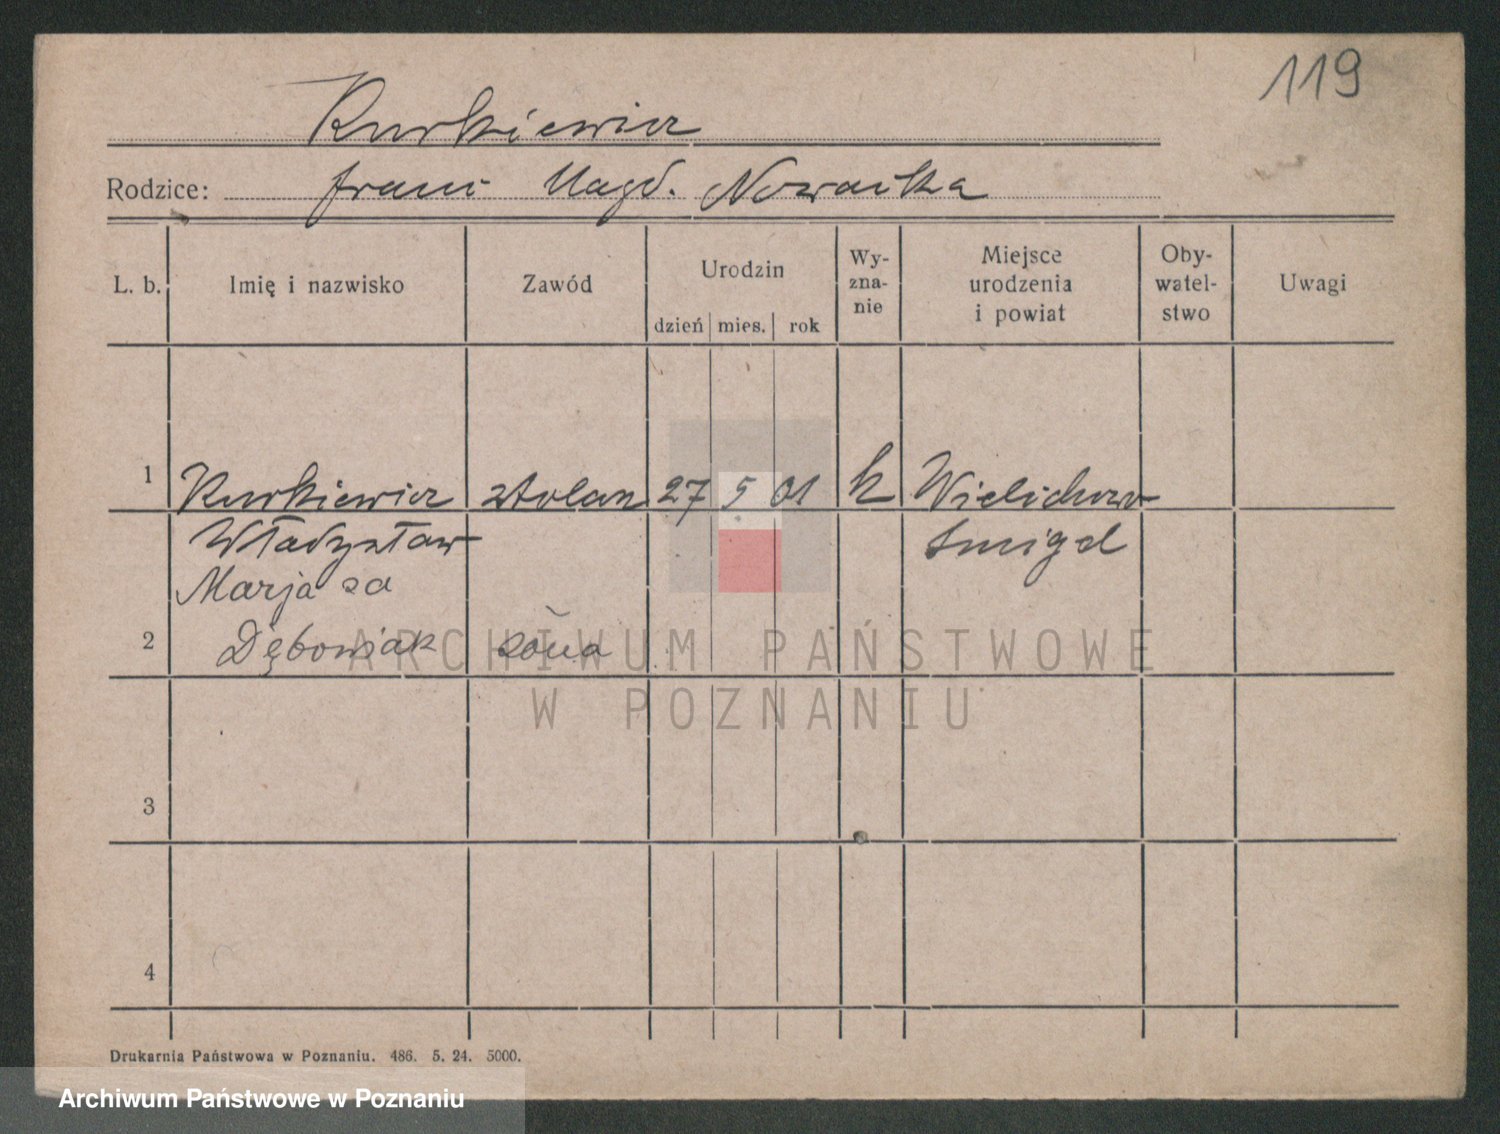 119
Kurkiewicz
Rodzice: Franc Magd. Nowacka
L. b. Imię i nazwisko Zawód Urodzin dzień mies. rok Wy-zna-nie Miejsce urodzenia i powiat Oby-watel-stwo Uwagi
1 Kurkiewicz stolarz 27 5 01 k Wielichowo
Władysław Śmigel
Marja za
2 Dęboniak żona
3
4
ARCHIWUM PAŃSTWOWE
W POZNANIU
Drukarnia Państwowa w Poznaniu. 486. 5. 24. 5000.
Archiwum Państwowe w Poznaniu